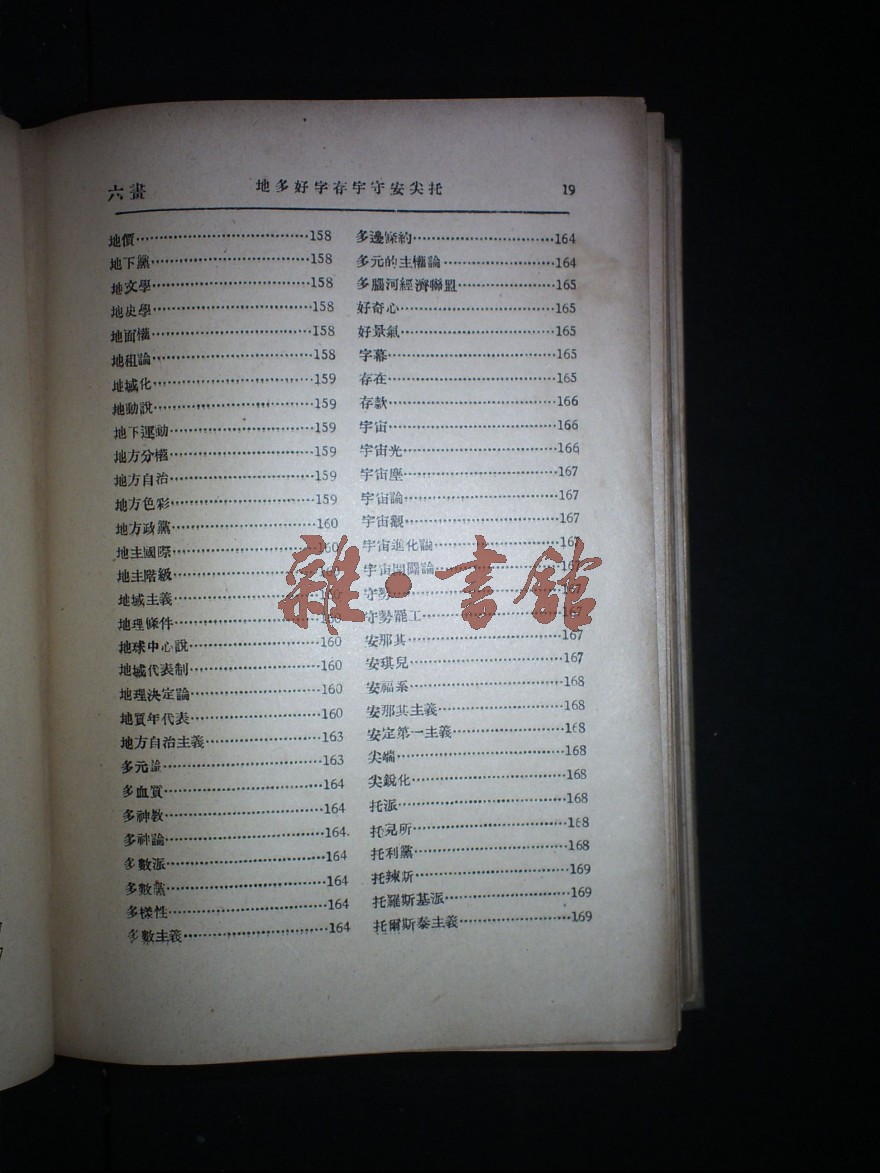 六畫 地多好字存宇守安尖托 19
地價 158
地下黨 158
地文學 158
地史學 158
地面權 158
地租論 158
地域化 159
地動說 159
地下運動 159
地方分權 159
地方自治 159
地方色彩 159
地方政黨 160
地主國際 160
地主階級 160
地域主義 160
地理條件 160
地球中心說 160
地域代表制 160
地理決定論 160
地質年代表 160
地方自治主義 163
多元論 163
多血質 164
多神教 164
多神論 164
多數派 164
多數黨 164
多樣性 164
多數主義 164
多邊條約 164
多元的主權論 164
多腦河經濟聯盟 165
好奇心 165
好景氣 165
字幕 165
存在 165
存款 166
宇宙 166
宇宙光 166
宇宙塵 167
宇宙論 167
宇宙觀 167
宇宙進化論 167
宇宙開闢論 167
守勢 167
守勢罷工 167
安那其 167
安琪兒 167
安福系 168
安那其主義 168
安定第一主義 168
尖端 168
尖銳化 168
托派 168
托兒所 168
托利黨 168
托辣斯 169
托羅斯基派 169
托爾斯泰主義 169
雜·書館